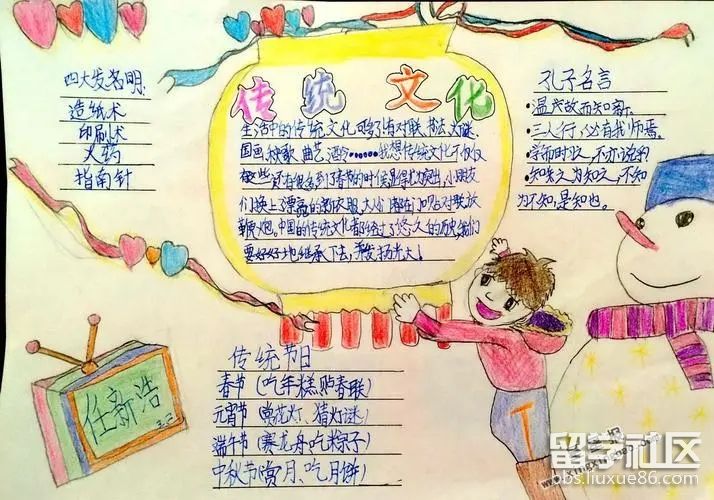 四大发名明:
造纸术
印刷术
火药
指南针
传统文化
生活中的传统文化可多了有对联、书法、灯谜、
国画、秧歌、曲艺、酒令……我想传统文化不仅仅
有这些还有很多到了春节的时候显得尤突出,小朋友
们换上了漂亮的新衣服,大人们都在门口贴对联放
鞭炮。中国的传统文化都经过了悠久的历史,我们
要好好地继承下去,并发扬光大!
孔子名言
·温故而知新。
·三人行,必有我师焉。
·学而时习之,不亦说乎
·知之为知之,不知
为不知,是知也。
传统节日
春节(吃年糕贴春联)
元宵节(赏花灯、猜灯谜)
端午节(赛龙舟,吃粽子)
中秋节(赏月、吃月饼)
任新浩
3.2
T
留学社区
bbs.liuxue86.com